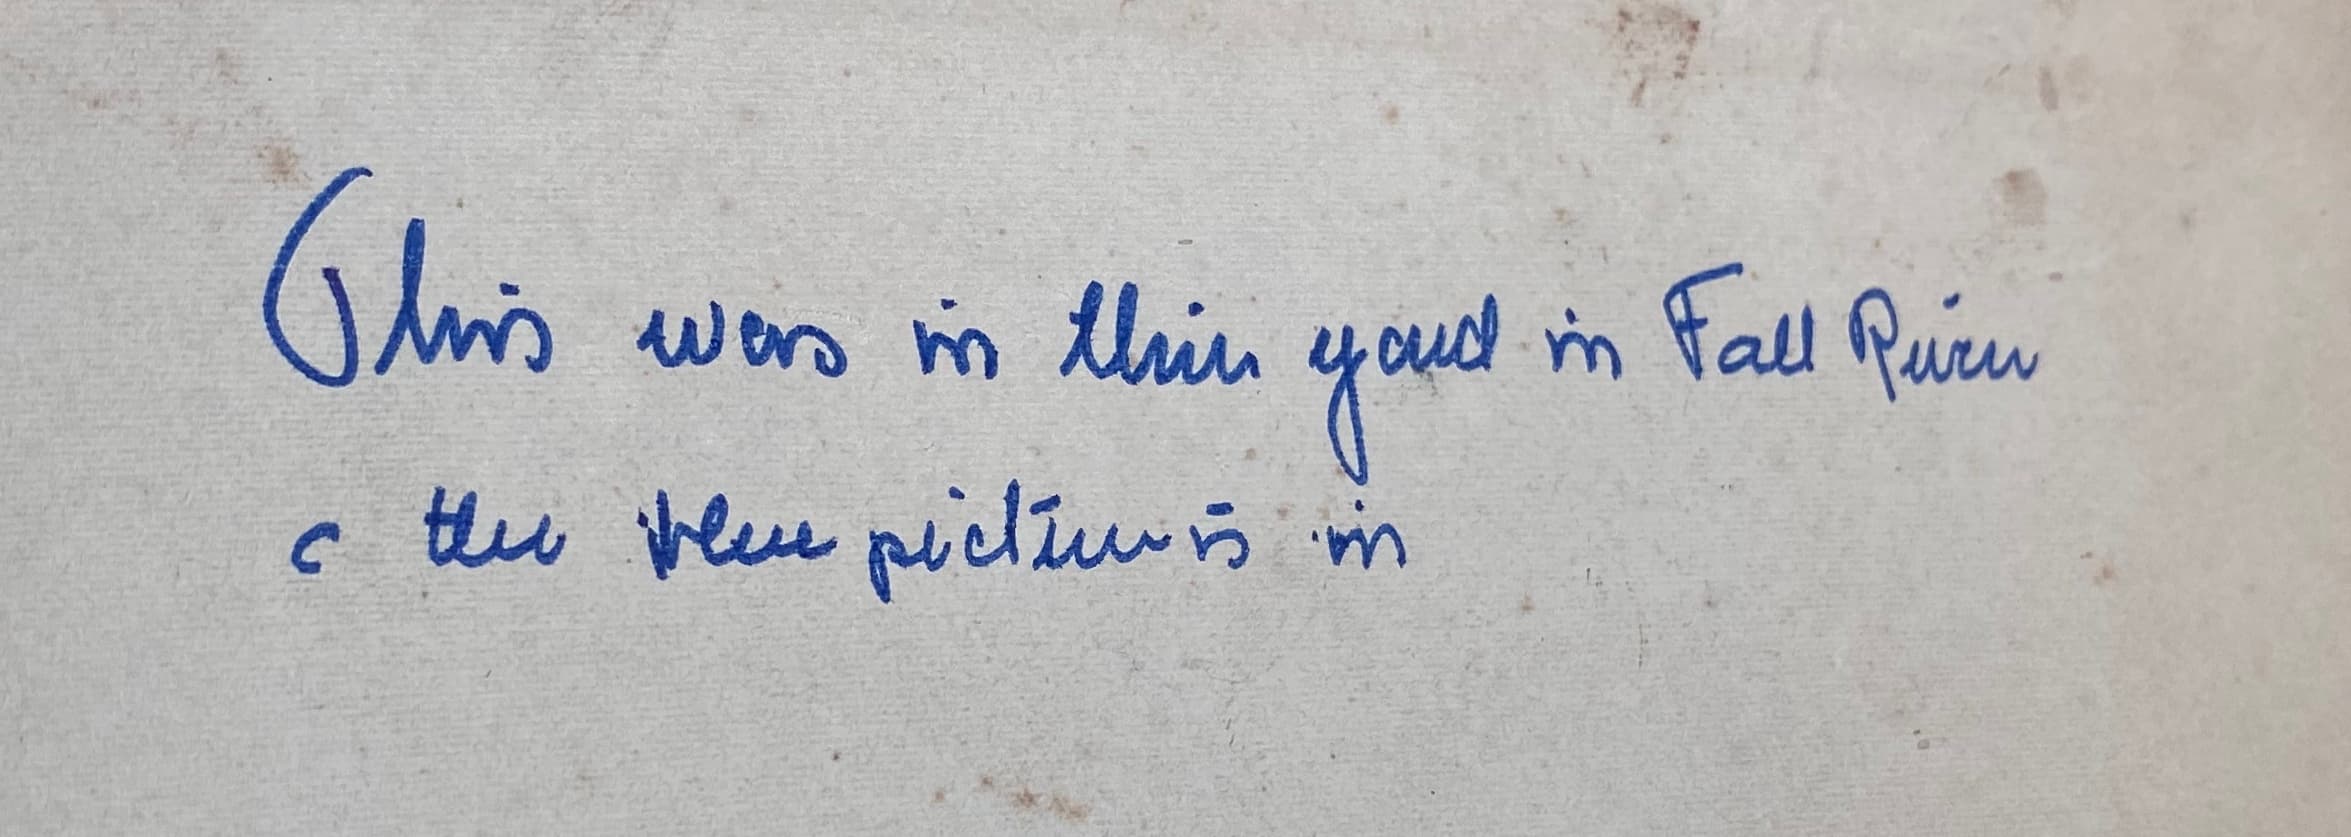 This was in their yard in Fall River
c the blue picture is in